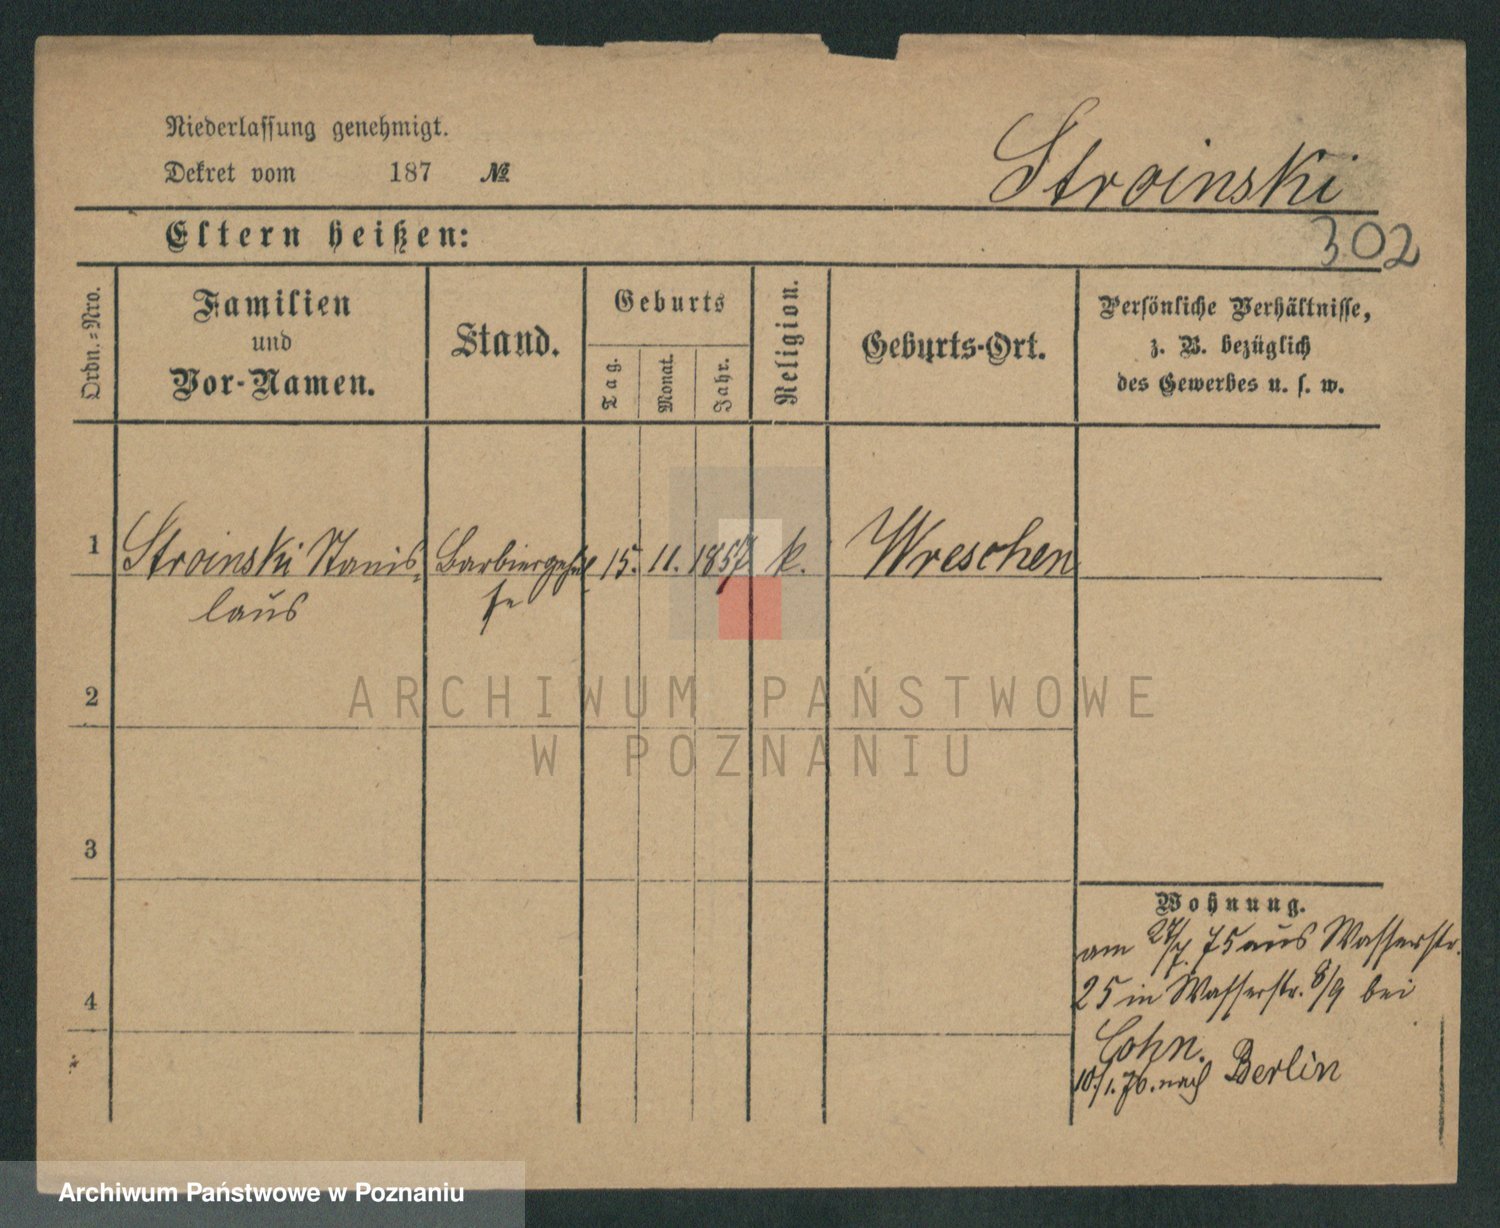 Niederlassung genehmigt.
Dekret vom 187 №
Stroinski
302
Eltern heißen:
Ordn.-Nro.
Familien
und
Vor-Namen.
Stand.
Geburts
Tag.
Monat.
Jahr.
Religion.
Geburts-Ort.
Persönliche Verhältnisse,
z. B. bezüglich
des Gewerbes u. s. w.
1 Stroinski Stanis- Barbiergehül- 15. 11. 1857 k. Wreschen
laus fe
2
3
4
Wohnung.
am 27/7. 75 aus Wasserstr.
25 in Wasserstr. 8/9 bei
Cohn.
10/1. 76. nach Berlin
ARCHIWUM PAŃSTWOWE
W POZNANIU
Archiwum Państwowe w Poznaniu